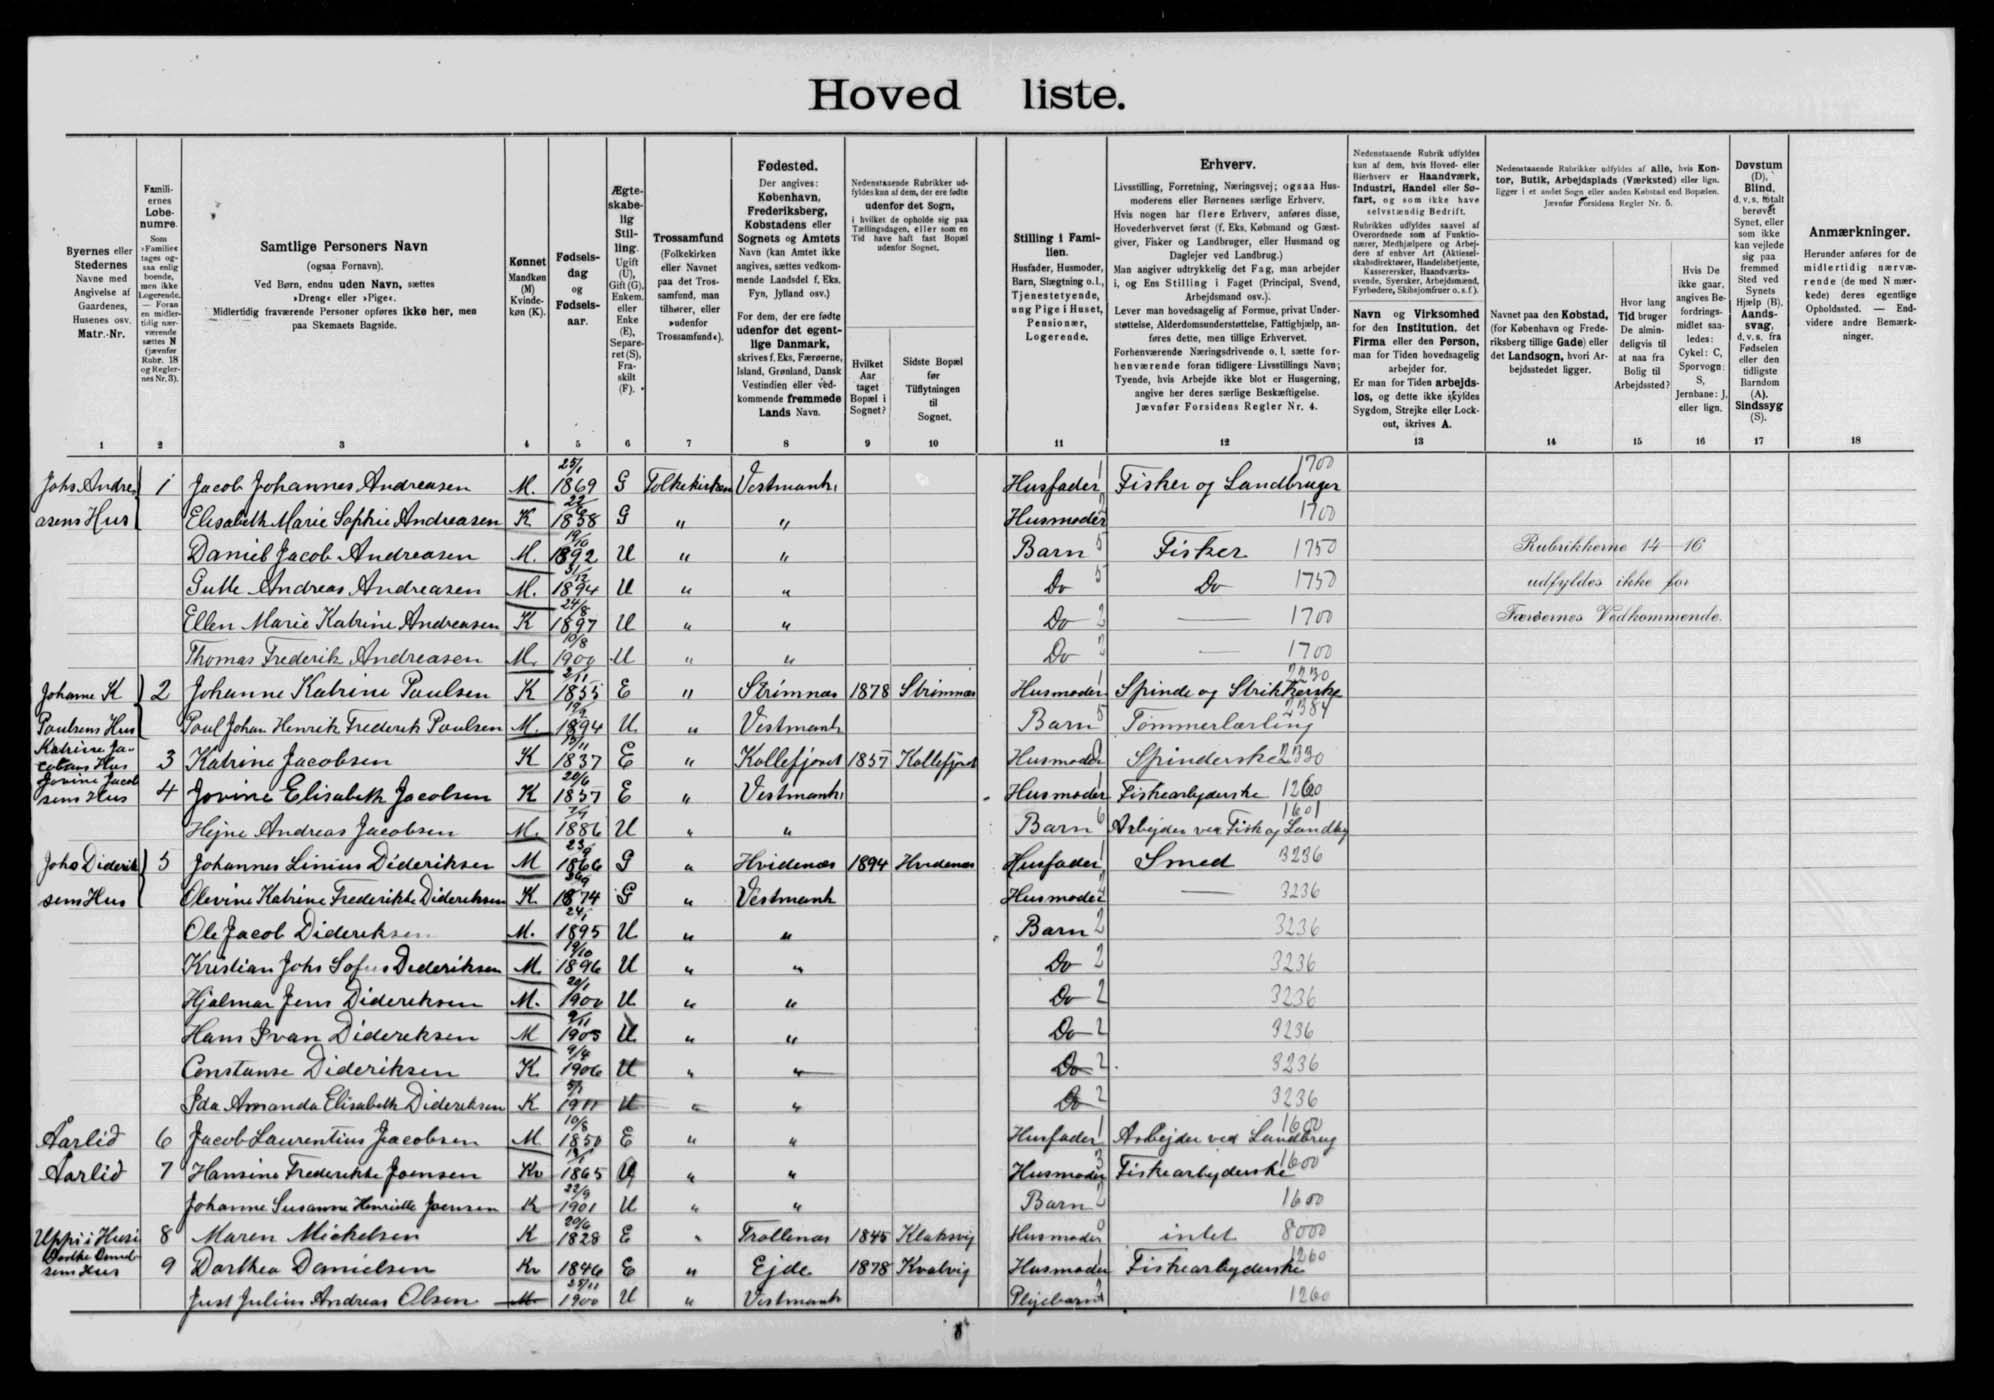 Hoved liste.
Byernes eller Stedernes Navne med Angivelse af Gaardenes, Husenes osv. Matr.-Nr.
Familiernes Løbenumre. Som »Familie« tages ogsaa enlig boende, men ikke Logerende. — Foran en midlertidig nærværende sættes N (jævnfør Rubr. 18 og Reglernes Nr. 3).
Samtlige Personers Navn
(ogsaa Fornavn).
Ved Børn, endnu uden Navn, sættes
»Dreng« eller »Pige«.
Midlertidig fraværende Personer opføres ikke her, men
paa Skemaets Bagside.
Kønnet Mandkøn (M) Kvindekøn (K).
Fødselsdag og Fødselsaar.
Ægteskabelig Stilling. Ugift (U), Gift (G), Enkem. eller Enke (E), Separeret (S), Fraskilt (F).
Trossamfund (Folkekirken eller Navnet paa det Trossamfund, man tilhører, eller »udenfor Trossamfund«).
Fødested.
Der angives: København, Frederiksberg, Købstadens eller Sognets og Amtets Navn (kan Amtet ikke angives, sættes vedkommende Landsdel f. Eks. Fyn, Jylland osv.)
For dem, der ere fødte udenfor det egentlige Danmark, skrives f. Eks. Færøerne, Island, Grønland, Dansk Vestindien eller vedkommende fremmede Lands Navn.
Nedenstaaende Rubrikker udfyldes kun af dem, der ere fødte udenfor det Sogn, i hvilket de opholde sig paa Tællingsdagen, eller som en Tid have haft fast Bopæl udenfor Sognet.
Hvilket Aar taget Bopæl i Sognet?
Sidste Bopæl før Tilflytningen til Sognet.
Stilling i Familien.
Husfader, Husmoder, Barn, Slægtning o. l., Tjenestetyende, ung Pige i Huset, Pensionær, Logerende.
Erhverv.
Livsstilling, Forretning, Næringsvej; ogsaa Husmoderens eller Børnenes særlige Erhverv.
Hvis nogen har flere Erhverv, anføres disse, Hovederhvervet først (f. Eks. Købmand og Gæstgiver, Fisker og Landbruger, eller Husmand og Daglejer ved Landbrug.)
Man angiver udtrykkelig det Fag, man arbejder i, og Ens Stilling i Faget (Principal, Svend, Arbejdsmand osv.).
Lever man hovedsagelig af Formue, privat Understøttelse, Alderdomsunderstøttelse, Fattighjælp, anføres dette, men tillige Erhvervet.
Forhenværende Næringsdrivende o. l. sætte forhenværende foran tidligere Livsstillings Navn; Tyende, hvis Arbejde ikke blot er Husgerning, angive her deres særlige Beskæftigelse.
Jævnfør Forsidens Regler Nr. 4.
Nedenstaaende Rubrik udfyldes kun af dem, hvis Hoved- eller Bierhverv er Haandværk, Industri, Handel eller Søfart, og som ikke have selvstændig Bedrift.
Rubrikken udfyldes saavel af Overordnede som af Funktionærer, Medhjælpere og Arbejdere af enhver Art (Aktieselskabsdirektører, Handelsbetjente, Kasserersker, Haandværkssvende, Syersker, Arbejdsmænd, Fyrbødere, Skibsjomfruer o. s. f.).
Navn og Virksomhed for den Institution, det Firma eller den Person, man for Tiden hovedsagelig arbejder for.
Er man for Tiden arbejdsløs, og dette ikke skyldes Sygdom, Strejke eller Lockout, skrives A.
Nedenstaaende Rubrikker udfyldes af alle, hvis Kontor, Butik, Arbejdsplads (Værksted) eller lign. ligger i et andet Sogn eller anden Købstad end Bopælen.
Jævnfør Forsidens Regler Nr. 5.
Navnet paa den Købstad, (for København og Frederiksberg tillige Gade) eller det Landsogn, hvori Arbejdsstedet ligger.
Hvor lang Tid bruger De almindeligvis til at naa fra Bolig til Arbejdssted?
Hvis De ikke gaar, angives Befordringsmidlet saaledes: Cykel: C, Sporvogn: S, Jernbane: J, eller lign.
Døvstum (D), Blind, d. v. s. totalt berøvet Synet, eller som ikke kan vejlede sig paa fremmed Sted ved Synets Hjælp (B). Aandssvag, d. v. s. fra Fødselen eller den tidligste Barndom (A). Sindssyg (S).
Anmærkninger.
Herunder anføres for de midlertidig nærværende (de med N mærkede) deres egentlige Opholdssted. — Endvidere andre Bemærkninger.
1 2 3 4 5 6 7 8 9 10 11 12 13 14 15 16 17 18
Johs Andre- 1 Jacob Johannes Andreasen M. 25/1 1869 G Folkekirken Vestmanh. Husfader 1 Fisker og Landbruger 1700
asens Hus Elisabeth Marie Sophie Andreasen K 1858 G " " Husmoder 1700
Daniel Jacob Andreasen M. 19/10 1892 U " " Barn 5 Fisker 1750 Rubrikkerne 14-16
Gutte Andreas Andreasen M. 31/12 1894 U " " Do 5 Do 1750 udfyldes ikke for
Ellen Marie Katrine Andreasen K 24/8 1897 U " " Do 2 — 1700 Færøernes Vedkommende.
Thomas Frederik Andreasen M. 10/8 1900 U " " Do 2 — 1700
Johanne K 2 Johanne Katrine Poulsen K 2/11 1855 E " Strømnæs 1878 Strømnæs Husmoder 1 Spinde og Strikkerske 2230
Poulsens Hus Poul Johan Henrik Frederik Poulsen M. 1894 U " Vestmanh Barn 5 Tømmerlærling 2384
Katrine Ja-
cobsens Hus 3 Katrine Jacobsen K 1837 E " Kollefjord 1857 Kollefjord Husmoder Spinderske 2330
Jovine Jacob
sens Hus 4 Jovine Elisabeth Jacobsen K 20/6 1857 E " Vestmanh. Husmoder 1 Fiskearbejderske 1260
Hejne Andreas Jacobsen M. 1886 U " " Barn 6 Arbejder ved Fisk og Landbg 1601
Johs Diderik 5 Johannes Linius Dideriksen M 1866 G " Hvidenæs 1894 Hvidenæs Husfader 1 Smed 3236
sens Hus Olevine Katrine Frederikke Dideriksen K. 1874 G " Vestmanh Husmoder 2 — 3236
Ole Jacob Dideriksen M. 24/1 1895 U " " Barn 2 3236
Kristian Johs Sofus Dideriksen M. 19/10 1896 U " " Do 2 3236
Hjalmar Jens Dideriksen M. 20/1 1900 U " " Do 2 3236
Hans Ivan Dideriksen M 9/11 1903 U " " Do 2 3236
Constanse Dideriksen K. 9/4 1906 U " " Do 2 3236
Ida Amanda Elisabeth Dideriksen K 5/1 1911 U " " Do 2 3236
Aarlid 6 Jacob Laurentius Jacobsen M 10/8 1850 E " " Husfader 1 Arbejder ved Landbrug 1600
Aarlid 7 Hansine Frederikke Joensen Kv 1865 U " " Husmoder 3 Fiskearbejderske 1600
Johanne Susanne Henriette Joensen K 22/9 1901 U " " Barn 2 1600
Uppi i Husi 8 Maren Mickelsen K 20/6 1828 E " Trollenæs 1845 Klaksvig Husmoder 0 intet 8000
Dorthe Daniel-
sens Hus 9 Dorthea Danielsen Kv 1846 E " Ejde 1878 Kvalvig Husmoder 1 Fiskearbejderske 1260
Just Julius Andreas Olsen M. 25/11 1900 U " Vestmanh Plejebarn 1260